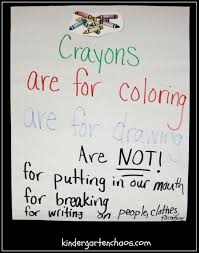 Crayons
are for coloring
are for drawing
Are NOT!
for putting in our mouth
for breaking
for writing on people, clothes,
furniture
kindergartenchaos.com